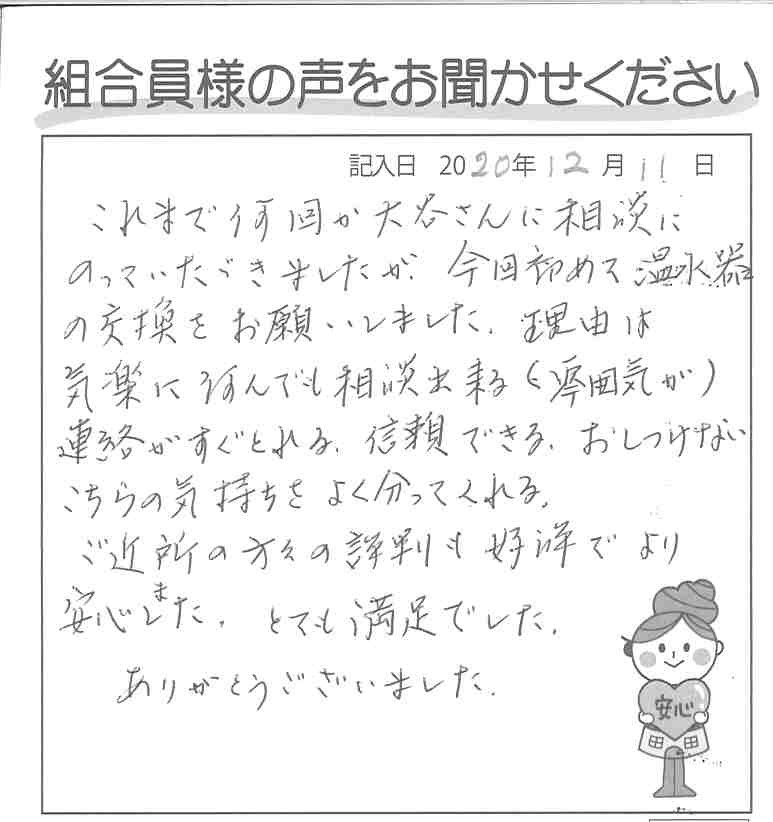 組合員様の声をお聞かせください
記入日 2020年12月11日
これまで何回か大谷さんに相談に
のっていただきましたが、今回初めて温水器
の交換をお願いしました。理由は
気楽に何んでも相談出来る(雰囲気が)
連絡がすぐとれる、信頼できる、おしつけない
こちらの気持ちをよく分ってくれる。
ご近所の方々の評判も好評でより
安心しました。とても満足でした。
ありがとうございました。
安心